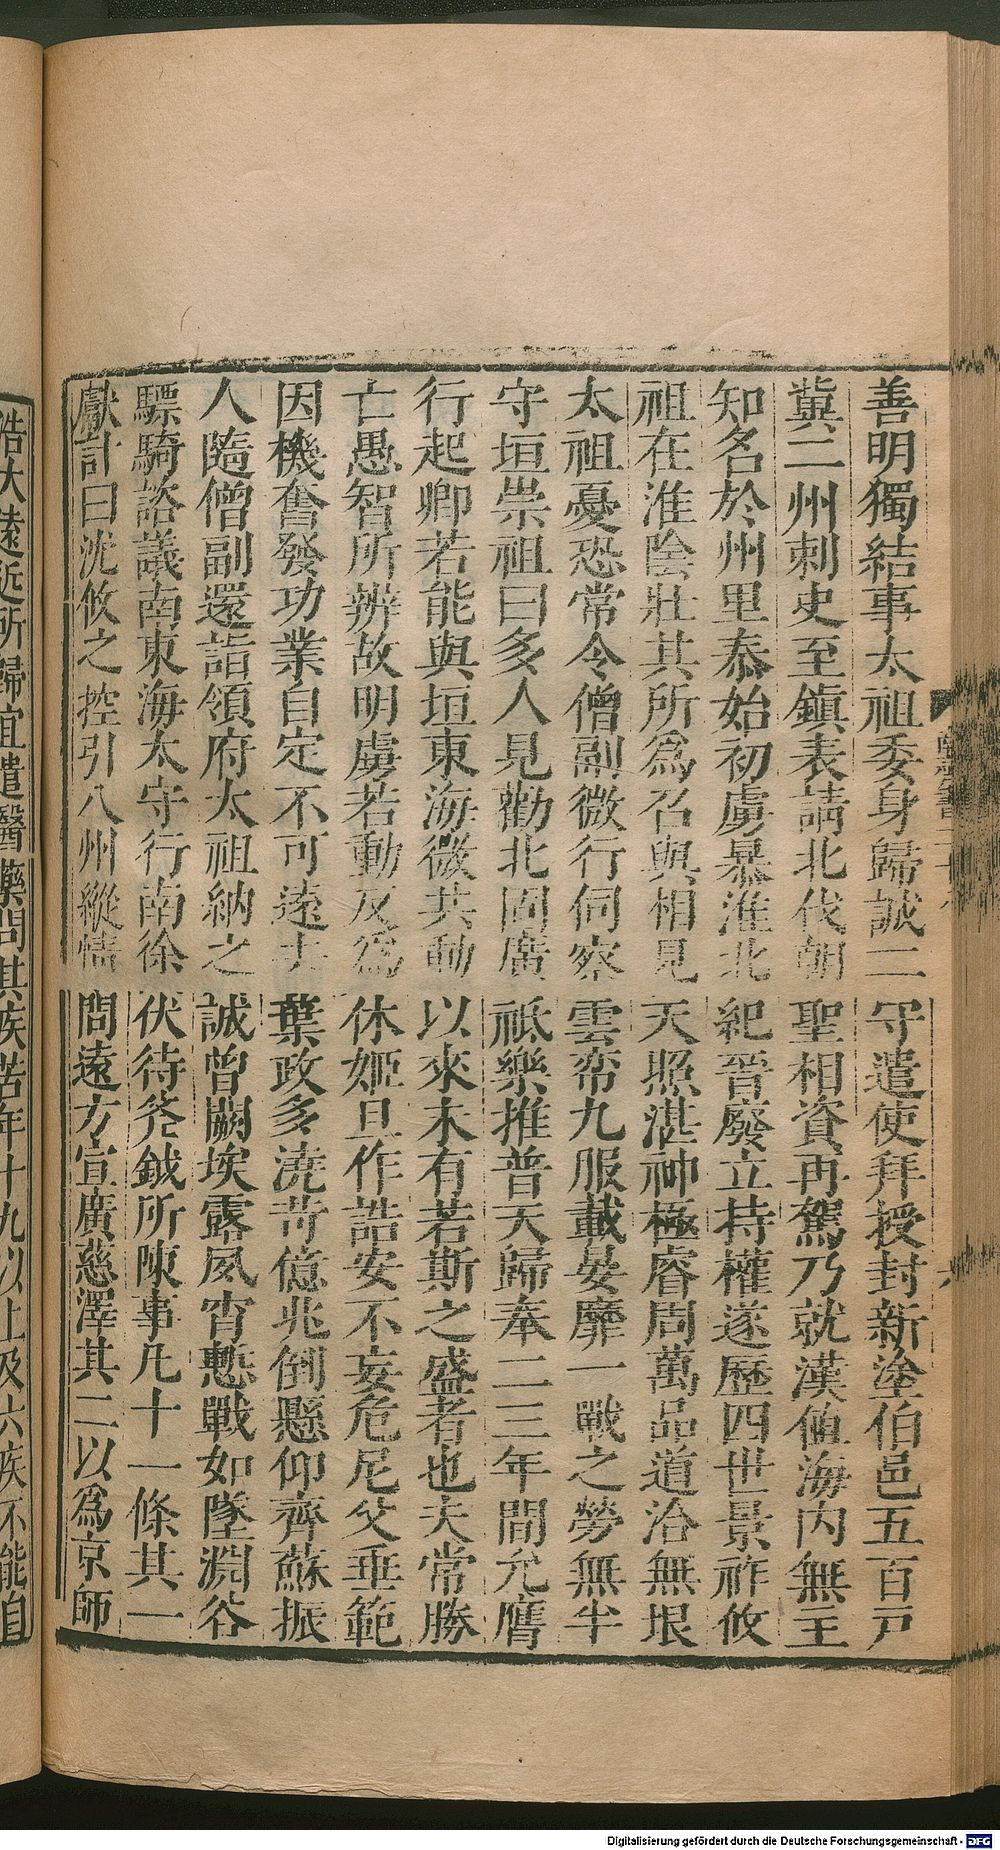 善明獨結事太祖委身歸誠二守遣使拜授封新塗伯邑五百戸
冀二州刺史至鎮表請北伐朝聖相資再駕乃就漢値海内無主
知名於州里泰始初虜暴淮北紀晉廢立持權遂歷四世景祚攸
祖在淮陰壯其所為召與相見天照湛神極睿周萬品道洽無垠
太祖憂恐常令僧副微行伺察雲帟九服載晏靡一戰之勞無半
守垣祟祖曰多人見勸北固廣祗樂推普天歸奉二三年間允膺
行起卿若能與垣東海微共動以來未有若斯之盛者也夫常勝
亡愚智所辨故明虜若動反為休姬旦作誥安不妄危尼父垂範
因機奮發功業自定不可遠去葉政多澆苛億兆倒懸仰齊蘇振
人隨僧副還詣領府太祖納之誠曾闕埃露夙宵慙戰如墜淵谷
驃騎諮議南東海太守行南徐伏待斧鉞所陳事凡十一條其一
獻計曰沈攸之控引八州縱情問遠方宣廣慈澤其二以為京師
浩大遠近所歸宜遣醫藥問其疾苦年十九以上及六疾不能自
Digitalisierung gefördert durch die Deutsche Forschungsgemeinschaft - DFG